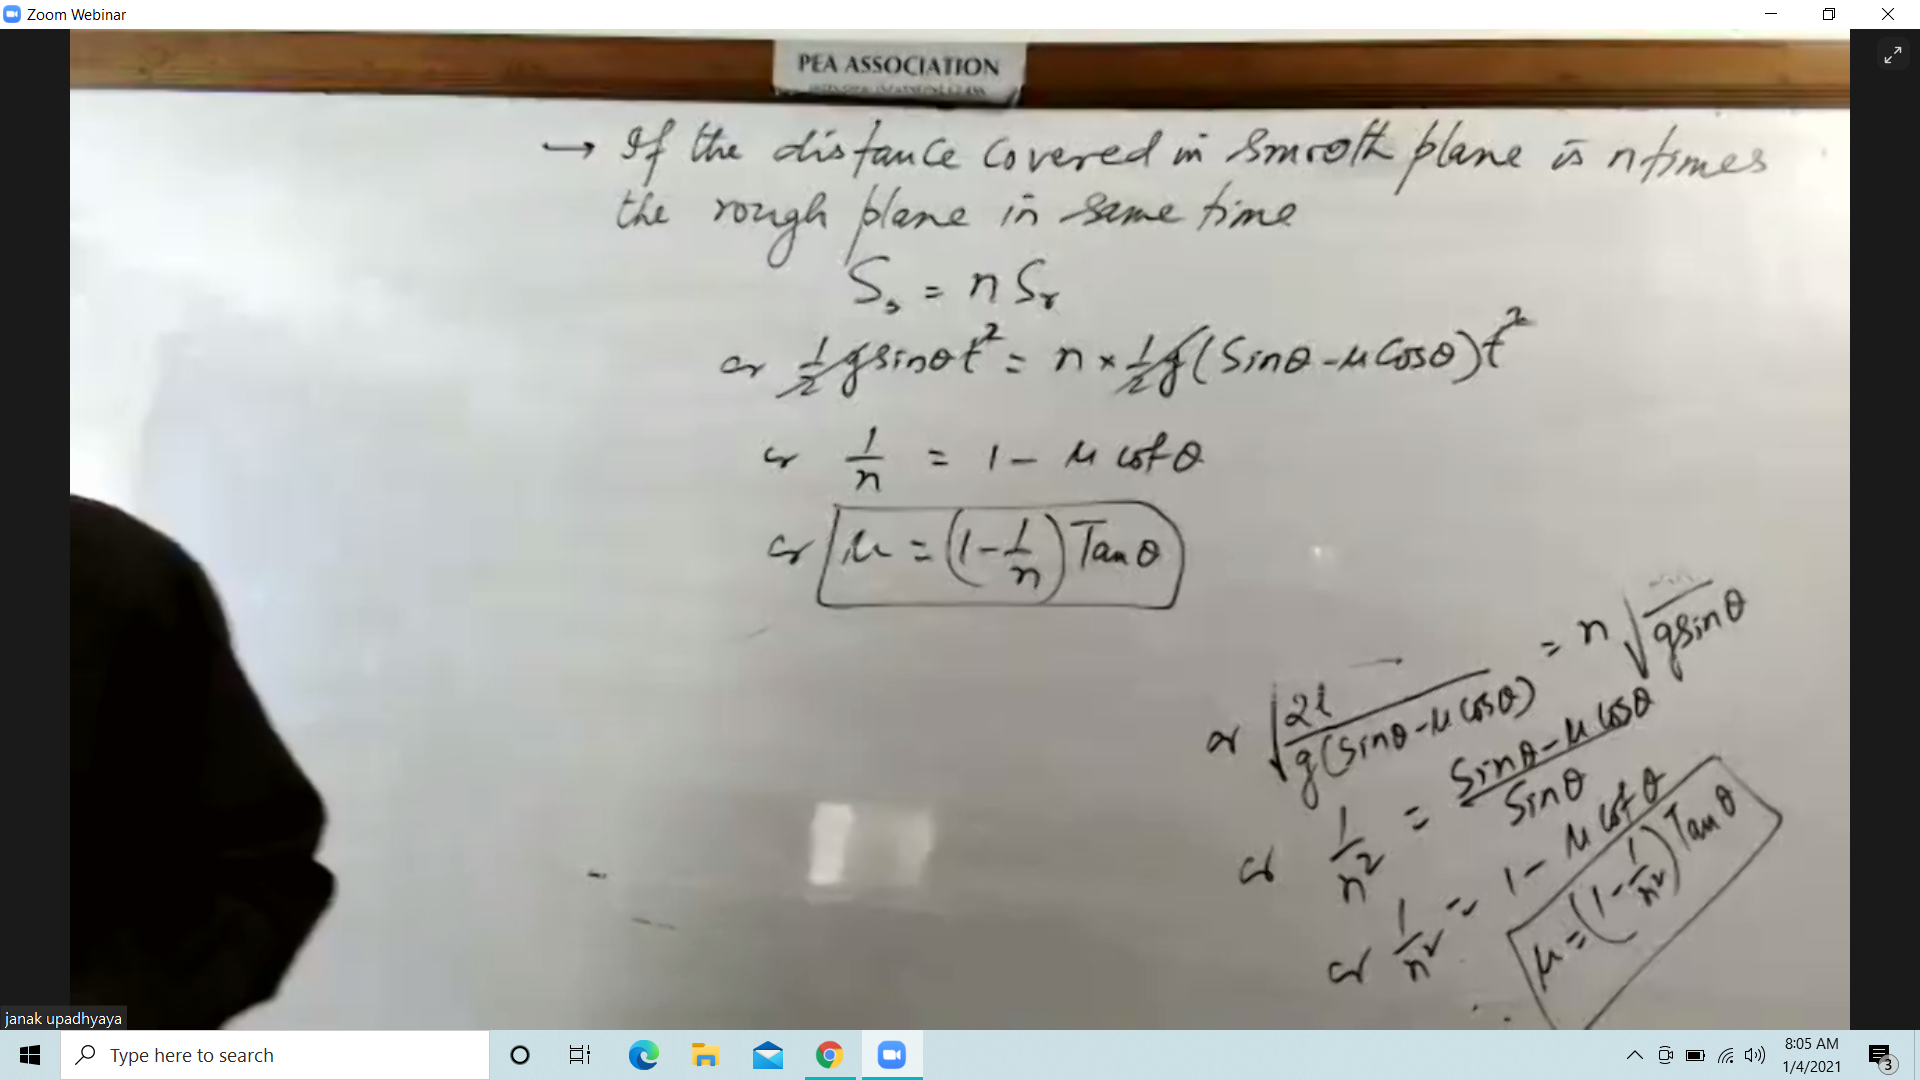 Zoom Webinar
PEA ASSOCIATION
→ If the distance covered in smooth plane is n times
the rough plane in same time
Sₛ = n Sᵣ
or ½ g sinθ t² = n × ½ g (Sinθ - μ Cosθ) t²
or 1/n = 1 - μ cot θ
or μ = (1 - 1/n) Tan θ
or √(2l / g(sinθ - μ cosθ)) = n √( / gsinθ)
or 1/n² = (Sinθ - μ cosθ) / Sinθ
or 1/n² = 1 - μ cot θ
∴ μ = (1 - 1/n²) Tan θ
janak upadhyaya
Type here to search
8:05 AM
1/4/2021
3